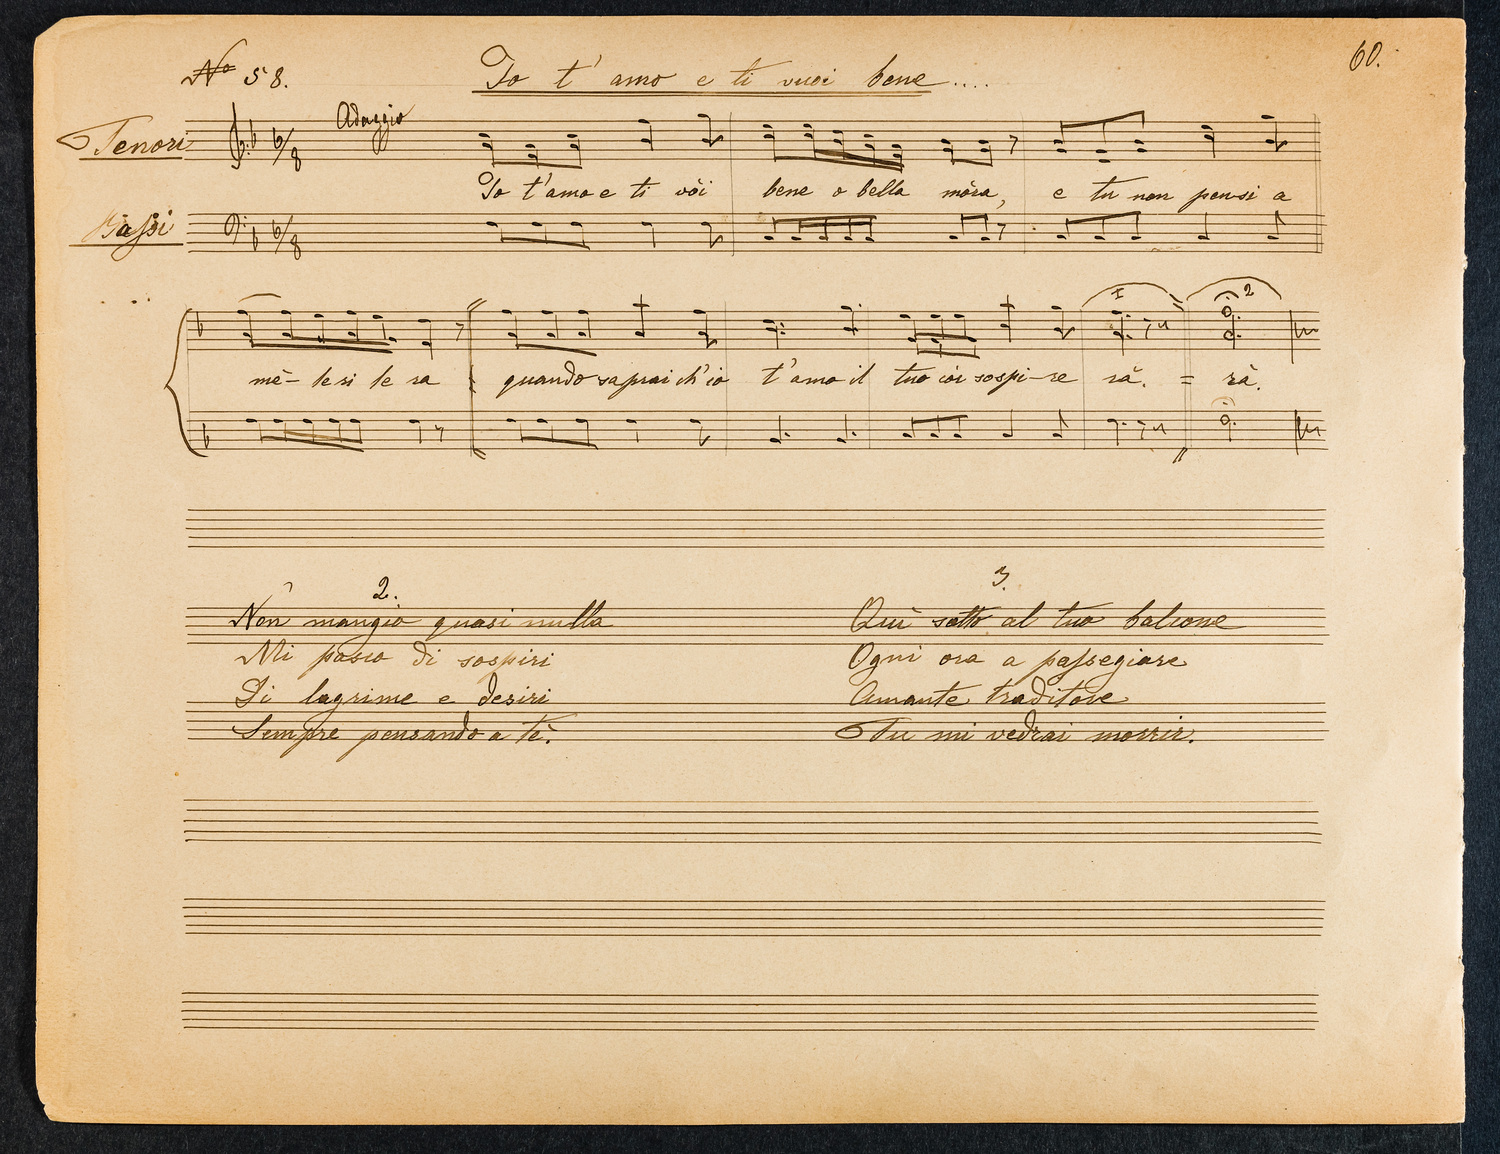 60.
No 58. Io t'amo e ti vuoi bene....
Adaggio
Tenori 6/8
Io t'amo e ti vòi bene o bella mòra, e tu non pensi a
Bassi 6/8
1 2
mè-
quando saprai ch'io t'amo il tuo còr sospi-re rà. = rà.
2. 3.
Non mangio quasi nulla Quì sotto al tuo balcone
Mi pasco di sospiri Ogni ora a passegiare
Di lagrime e desiri Amante traditore
Sempre pensando a tè. Tu mi vedrai morrir.